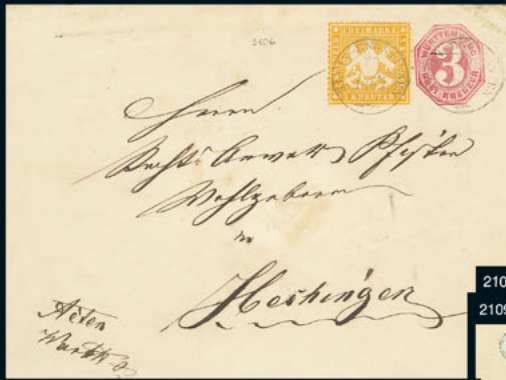 2106
FREIMARKE
KREUZER
WÜRTTEMBERG
3
DREI KREUZER
Herrn
Rechts Anwalt Pfister
Wohlgeboren
in
Hechingen
Acten
210
2109